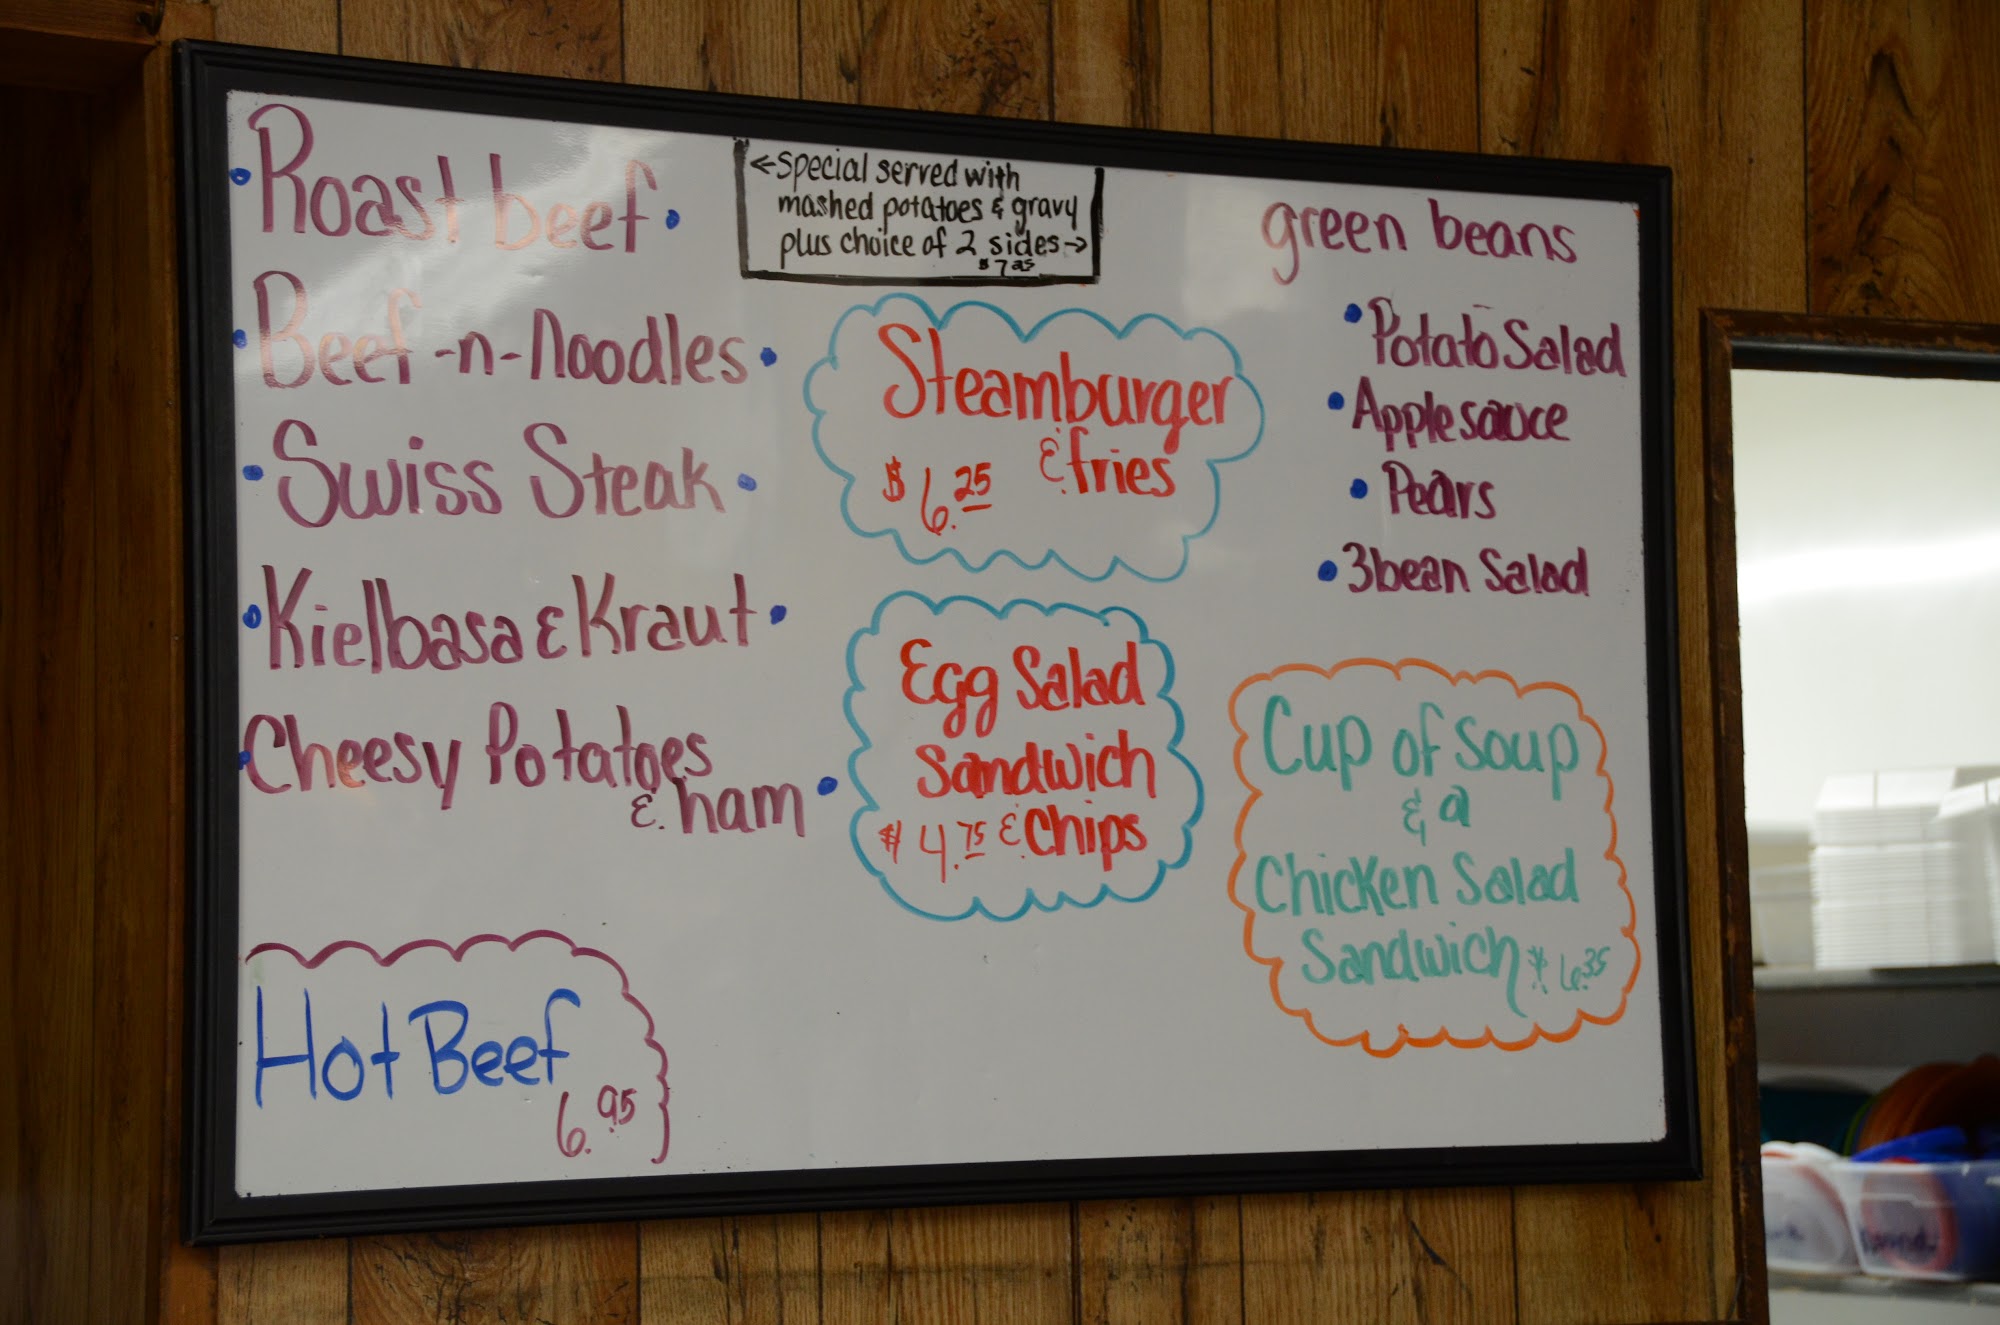 Roast beef
Beef-n-Noodles
Swiss Steak
Kielbasa & Kraut
Cheesy Potatoes
& ham
Hot Beef
6.95
←Special served with
mashed potatoes & gravy
plus choice of 2 sides→
Steamburger
& fries
$6.25
Egg Salad
Sandwich
$4.75 & Chips
green beans
Potato Salad
Applesauce
Pears
3 bean Salad
Cup of Soup
& a
Chicken Salad
Sandwich $6.35